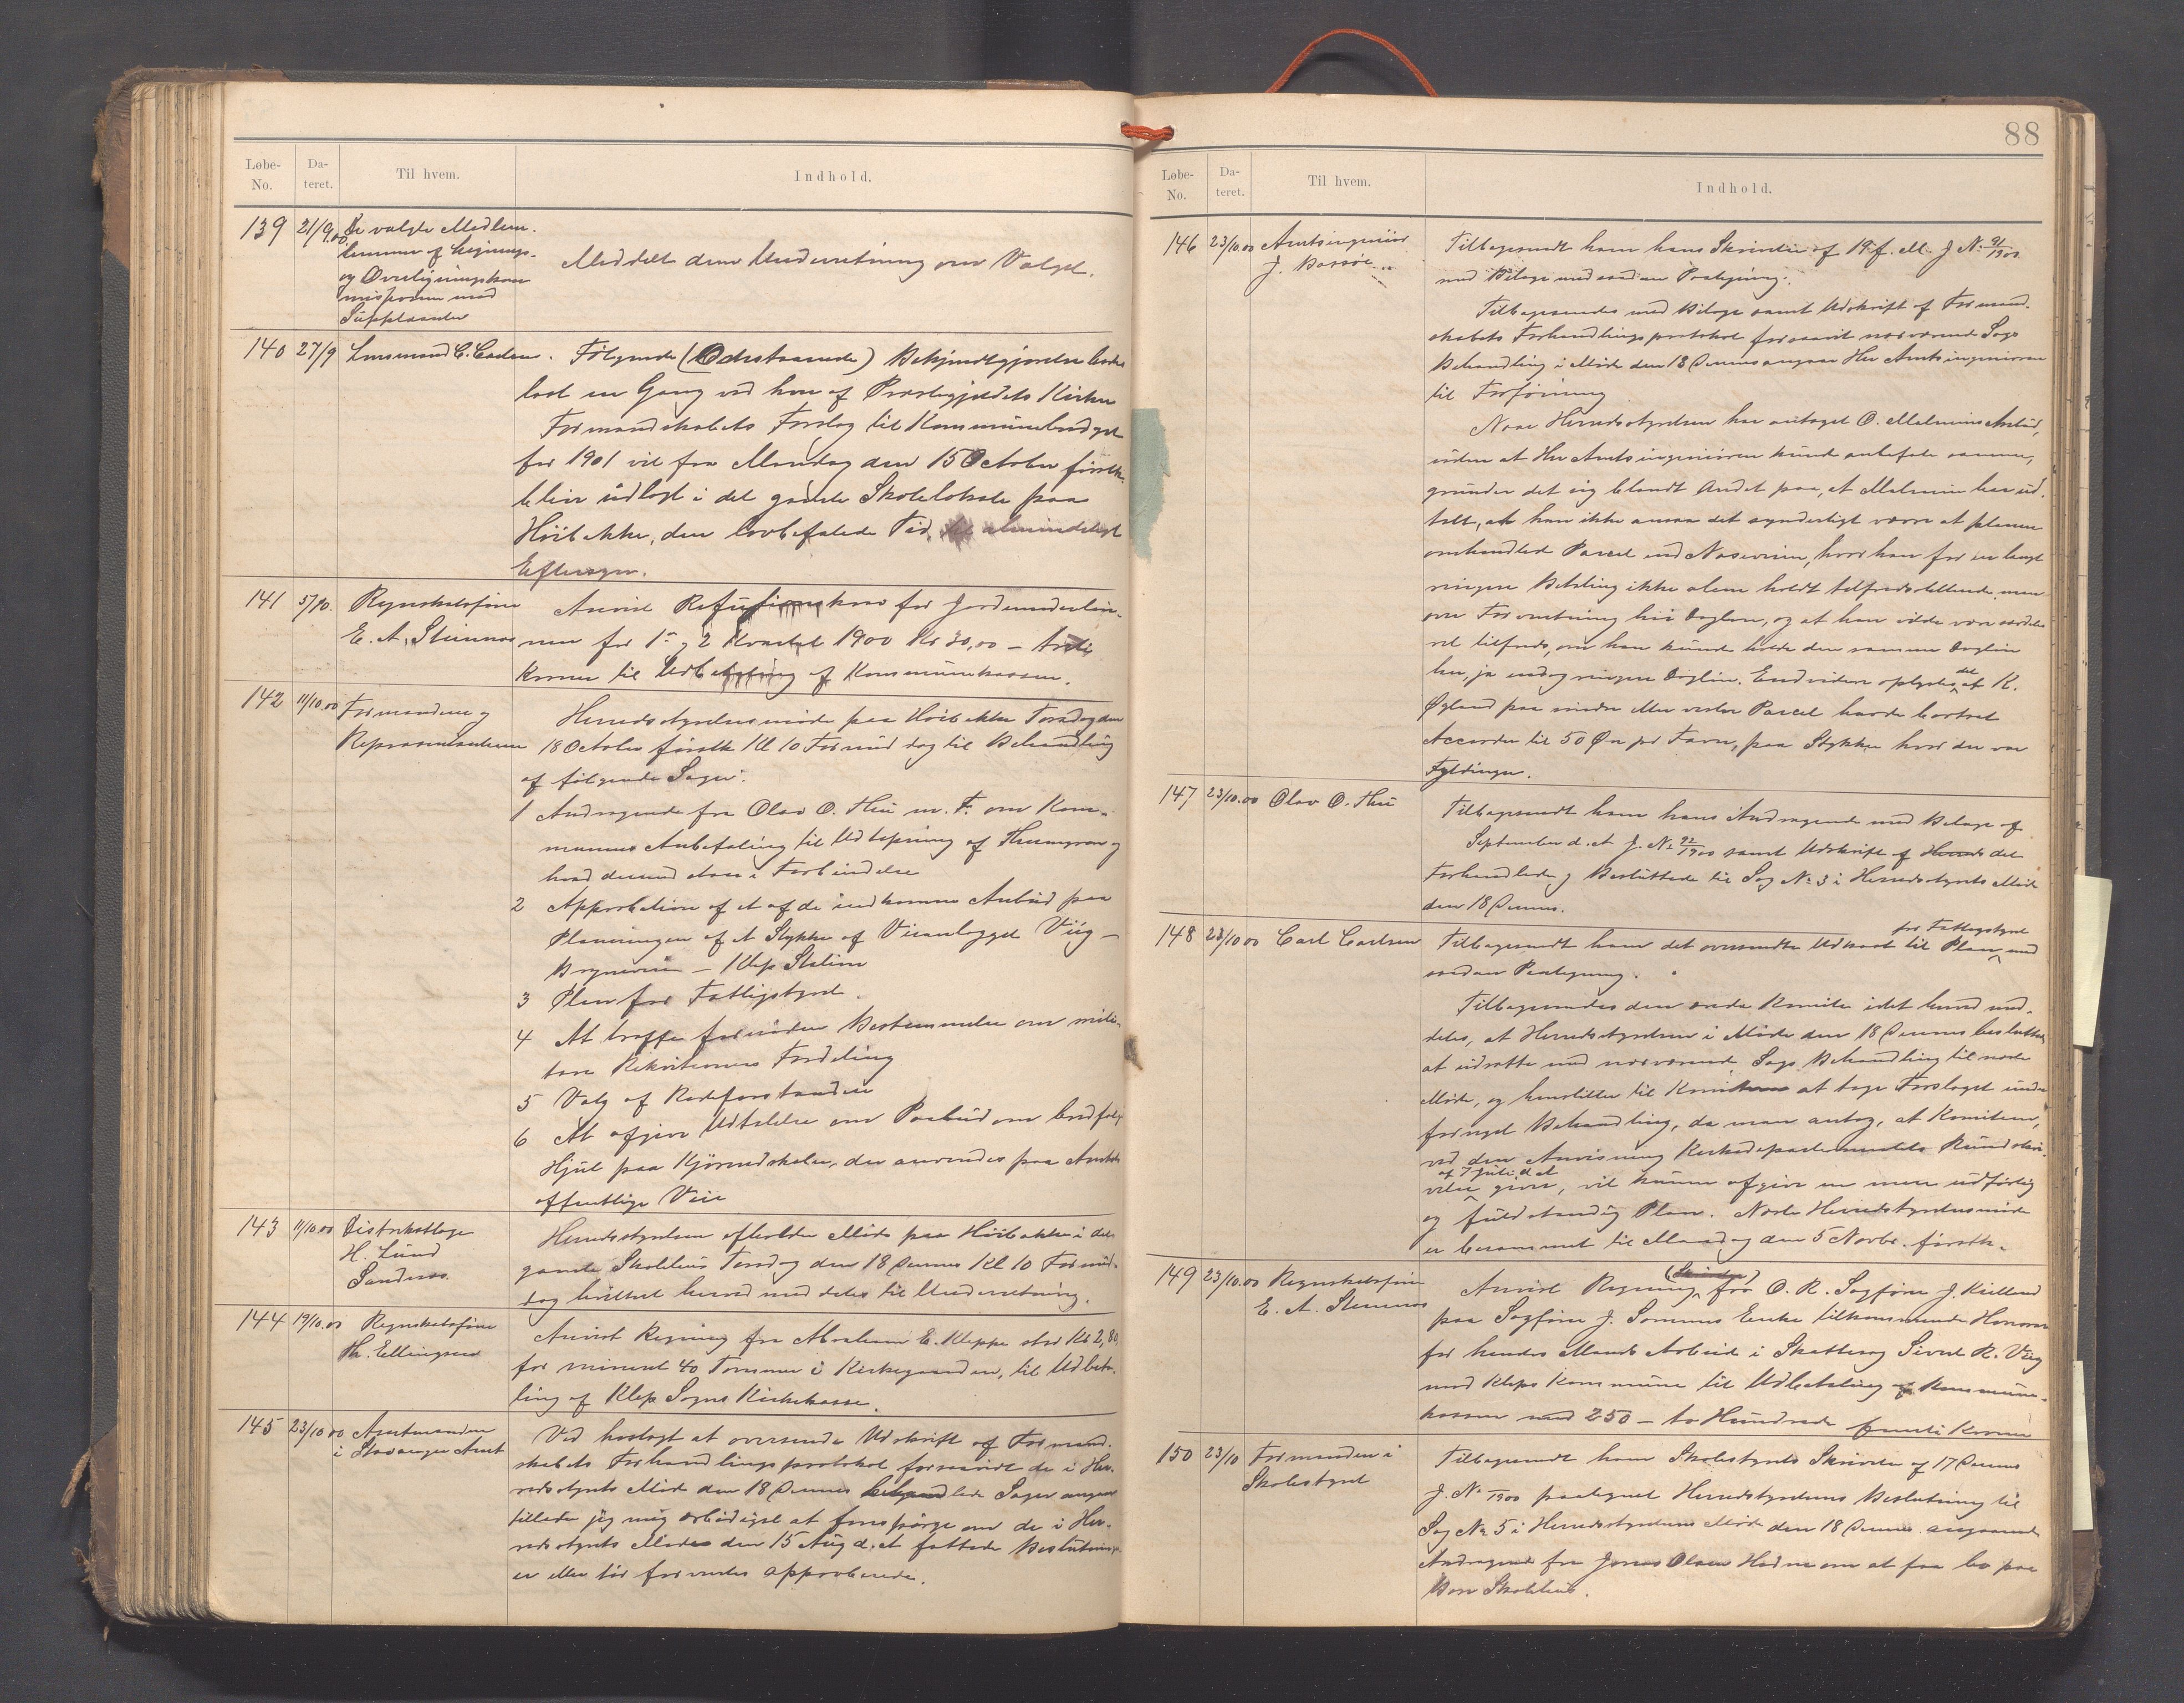 Løbe-No.
Da-teret.
Til hvem.
Indhold.
139
21/9.00.
De valgte Medlem-
lemmer af Lignings-
og Overligningskom
missionen med
Suppleanter
Meddelt dem Underretning om Valget.
140
27/9
Lensmand C. Carlsen.
Følgende (Ordretstaaende) Bekjendtgjørelse bedes
læst en Gang ved hver af Præstegjeldets Kirker
Formandskabets Forslag til Kommunebudget
for 1901 vil fra Mandag den 15 October førstk.
blive udlagt i det gamle Skolelokale paa
Höibakke, den lovbefalede Tid, til almindeligt
Eftersyn.
141
5/10.
Regnskabsfører
E. A. Stennes
Anvist Refusionskrav for Jordemoderløn-
nen for 1ste og 2 Kvartal 1900 Kr 30,00 – tretti
kroner til Udbetaling af Kommunekassen.
142
11/10.00
Formændene og
Repræsentanterne
Herredsstyrelsesmøde paa Höibakke Torsdag den
18 October førstk Kl 10 Formiddag til Behandling
af følgende Sager:
1 Andragende fra Olav O. Thu m. F. om Kom-
munens Anbefaling til Udtapning af
hvad dermed staar i Forbindelse
2 Approbation af et af de indkomne Anbud paa
Planeringen af et Stykke af Veianlægget Viig –
Bryneveien – Klep Station
3 Plan for Fattigstyret.
4 At træffe fornöden Bestemmelse om mili-
tære Rekvisitioners Fordeling
5 Valg af Rodeforstandere
6 At afgive Udtalelse om Paabud om bredfælg.
Hjul paa Kjøreredskaber, der anvendes paa Amtets
offentlige Veie
143
11/10.00
Distriktslæge
H. Lund
Sandnes.
Herredsstyrelsen afholder Möde paa Höibakke i det
gamle Skolehus Torsdag den 18 Dennes Kl 10 Formid-
dag hvilket herved meddeles til Underretning.
144
19/10.00
Regnskabsfører
Th. Ellingsen
Anvist Regning fra Abraham E. Kleppe stor Kr 2,80,
for mineret 40 Tommer i Kirkegaarden, til Udbeta-
ling af Klep Sogns Kirkekasse.
145
23/10 00
Amtmanden
i Stavanger Amt
Ved hoslagt at oversende Udskrift af Formand-
skabets Forhandlingsprotokol forsaavidt de i Her-
redsstyrets Möde den 18 Dennes behandlede Sager angaar
tillader jeg mig ærbödigst at forespörge om de i Her-
redsstyrets Möde den 15 Aug d. A. fattede Beslutning-
er eller tör forventes approberede.
88
Løbe-No.
Da-teret.
Til hvem.
Indhold.
146
23/10.00
Amtsingeniör
J. Bassöe
Tilbagesendt ham hans Skrivelse af 19 f. M. J No 91/1900
med Bilage med saadan Paategning:
Tilbagesendes med Bilage samt Udskrift af Formand-
skabets Forhandlingsprotokol forsaavidt nærværende Sags
Behandling i Möde den 18 Dennes angaar Hr Amtsingeniören
til Forföining
Naar Herredsstyrelsen har antaget O. Malmins Anbud,
uden at Hr Amtsingeniören kunde anbefale samme,
grunder det sig blandt Andet paa, at Malmin har ud-
talt, at han ikke ansaa det synderligt værre at planere
omhandlede Parcel end Næseveien, hvor han for en langt
ringere Betaling ikke alene holdt tilfredsstillende men
over Forventning höi Daglön, og at han vilde være særdeles
vel tilfreds, om han kunde holde den samme Daglön
her, ja endog ringere Daglön. Endvidere oplystes det at K.
Øgland paa nedre eller vestre Parcel havde bortsat
Accorder til 50 Öre pr Favn, paa Stykker hvor der var
Fyldinger.
147
23/10.00
Olav O. Thu
Tilbagesendt ham hans Andragende med Bilage af
September d. A. J. No 92/1900 samt Udskrift af Herreds det
Forhandlede og Besluttede til Sag No 3 i Herredsstyrets Möde
den 18 Dennes.
148
23/10 00
Carl Carlsen
for Fattigstyret
Tilbagesendt ham det oversendte Udkast til Plan med
saadan Paategning:
Tilbagesendes den ærede Komite idet herved med-
deles, at Herredsstyrelsen i Möde den 18 Dennes besluttede
at udsætte med nærværende Sags Behandling til næste
Möde, og henstiller til Komiteen at tage Forslaget under
fornyet Behandling, da man antog, at Komiteen,
ved den Anvisning Kirkedepartementets Rundskri-
velse af 7 Juli d. A. giver, vil kunne afgive en mere udförlig
og fuldstændig Plan. Næste Herredsstyrelsesmöde
er berammet til Mandag den 5 Novbr. förstk.
149
23/10.00
Regnskabsfører
E. A. Stennes
Anvist Regning fra O. R. Sagförer J. Kielland
paa Sagförer J. Sömmes Enke tilkommende Honorar
for hendes Mands Arbeide i Skattesag Sivert R. Viig
mod Kleps Kommune til Udbetaling af Kommune-
kassen med 250 – to Hundrede femti Kroner
150
23/10
Formanden i
Skolestyret
Tilbagesendt ham Skolestyrets Skrivelse af 17 Dennes
J. No /1900 paategnet Herredsstyrelsens Beslutning til
Sag No 5 i Herredsstyrelsens Möde den 18 Dennes angaaende
Andragende fra Jonas Olsen Hodne om at faa bo paa
Bore Skolehus.